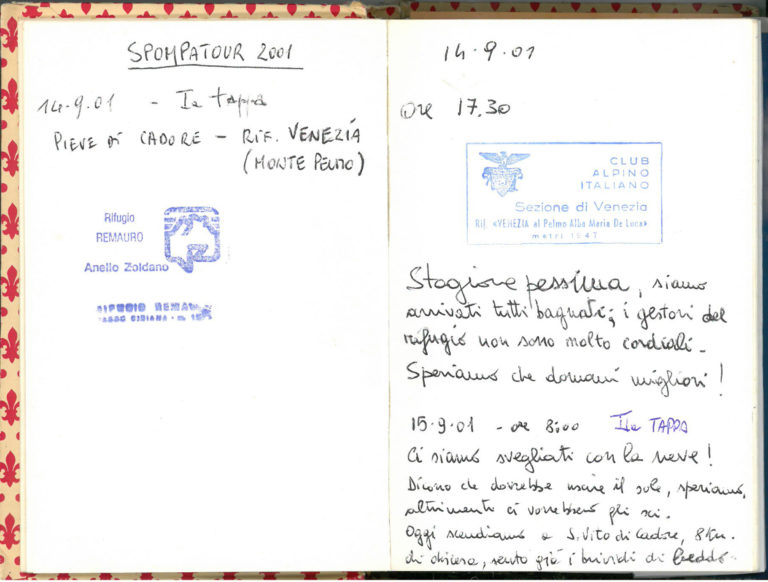 SPOMPATOUR 2001
14.9.01 - Ia tappa
PIEVE DI CADORE - RIF. VENEZIA
(MONTE PELMO)
Rifugio
REMAURO
Anello Zoldano
RIFUGIO REMAURO
PASSO CIBIANA
14.9.01
Ore 17.30
CLUB
ALPINO
ITALIANO
Sezione di Venezia
Rif. «VENEZIA al Pelmo Alba Maria De Luca»
metri 1947
Stagione pessima, siamo
arrivati tutti bagnati; i gestori del
rifugio non sono molto cordiali.
Speriamo che domani migliori!
15.9.01 - ore 8:00 IIa TAPPA
Ci siamo svegliati con la neve!
Dicono che dovrebbe uscire il sole, speriamo,
altrimenti ci vorrebbero gli sci.
Oggi scendiamo a S. Vito di Cadore, 8 Km.
di discesa, sento già i brividi di freddo.